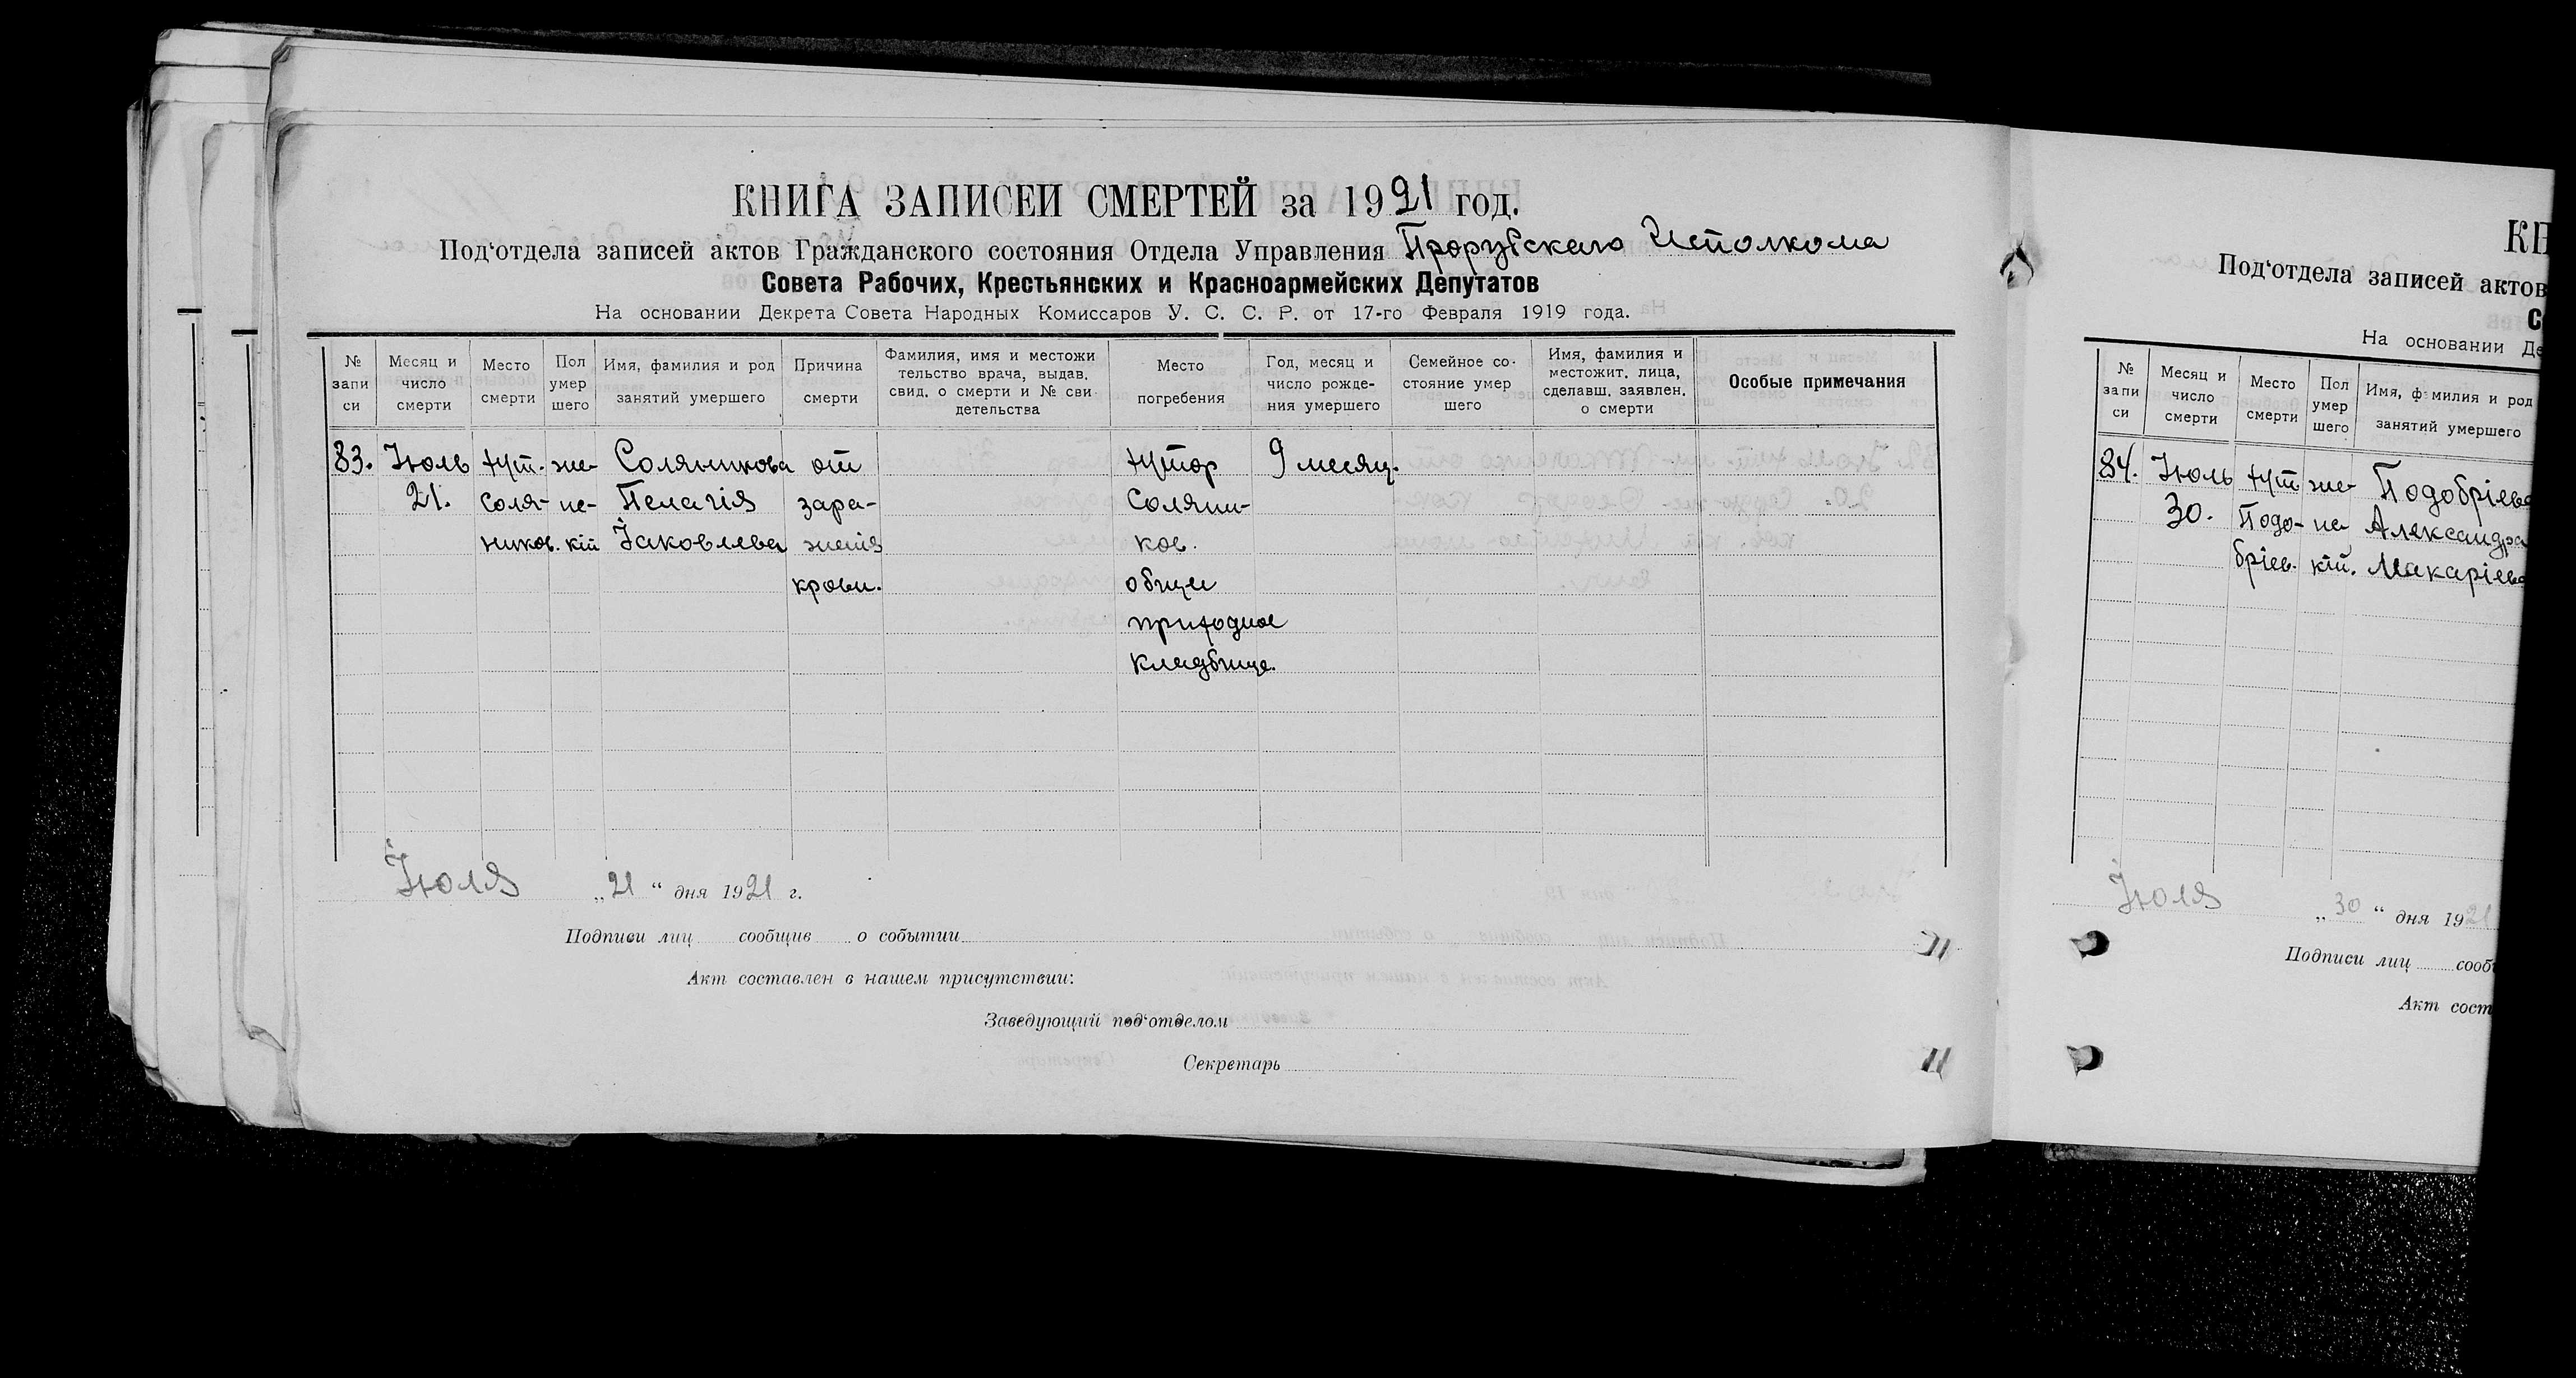 КНИГА ЗАПИСЕЙ СМЕРТЕЙ за 1921 год.
Под‘отдела записей актов Гражданского состояния Отдела Управления Прорубскаго Исполкома
Совета Рабочих, Крестьянских и Красноармейских Депутатов
На основании Декрета Совета Народных Комиссаров У. С. С. Р. от 17-го Февраля 1919 года.
№ запи си
Месяц и число смерти
Место смерти
Пол умер шего
Имя, фамилия и род занятий умершего
Причина смерти
Фамилия, имя и местожи тельство врача, выдав. свид. о смерти и № сви детельства
Место погребения
Год, месяц и число рожде- ния умершего
Семейное со- стояние умер шего
Имя, фамилия и местожит. лица, сделавш. заявлен. о смерти
Особые примечания
83. Июль хут. же- Соляникова от хутор 9 месяц.
21. Соля- не- Пелагія зара- Соляни-
ников. кій Іаковлева женія ков.
крови. общее
приходное
кладбище.
Іюля „21“ дня 1921 г.
Подписи лиц сообщив о событии
Акт составлен в нашем присутствии:
Заведующий под‘отделом
Секретарь
КН
Под‘отдела записей актов
С
На основании Де
№ запи си
Месяц и число смерти
Место смерти
Пол умер шего
Имя, фамилия и род занятий умершего
84. Июль хут же- Подобріева
30. Подо- не Александра
бріев. кій. Макаріева
Іюля „30“ дня 1921
Подписи лиц сооб
Акт сост